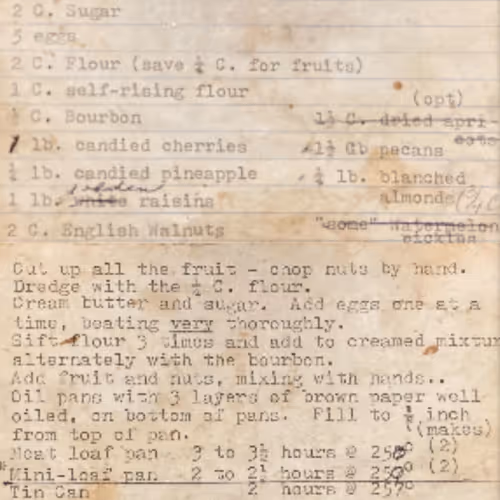 2 C. Sugar
5 eggs
2 C. Flour (save ½ C. for fruits)
1 C. self-rising flour
½ C. Bourbon
1 lb. candied cherries
½ lb. candied pineapple
1 lb. golden white raisins
2 C. English Walnuts
(opt)
1½ C. dried apri-
cots
1½ lb pecans
½ lb. blanched
almonds (3/4 C
"some" Watermelon
pickles
Cut up all the fruit - chop nuts by hand.
Dredge with the ½ C. flour.
Cream butter and sugar. Add eggs one at a
time, beating very thoroughly.
Sift flour 3 times and add to creamed mixtur
alternately with the bourbon.
Add fruit and nuts, mixing with hands..
Oil pans with 3 layers of brown paper well
oiled, on bottom of pans. Fill to ½ inch
from top of pan. (makes)
Meat loaf pan 3 to 3½ hours @ 250° (2)
Mini-loaf pan 2 to 2½ hours @ 250° (2)
Tin Can 2 hours @ 250°